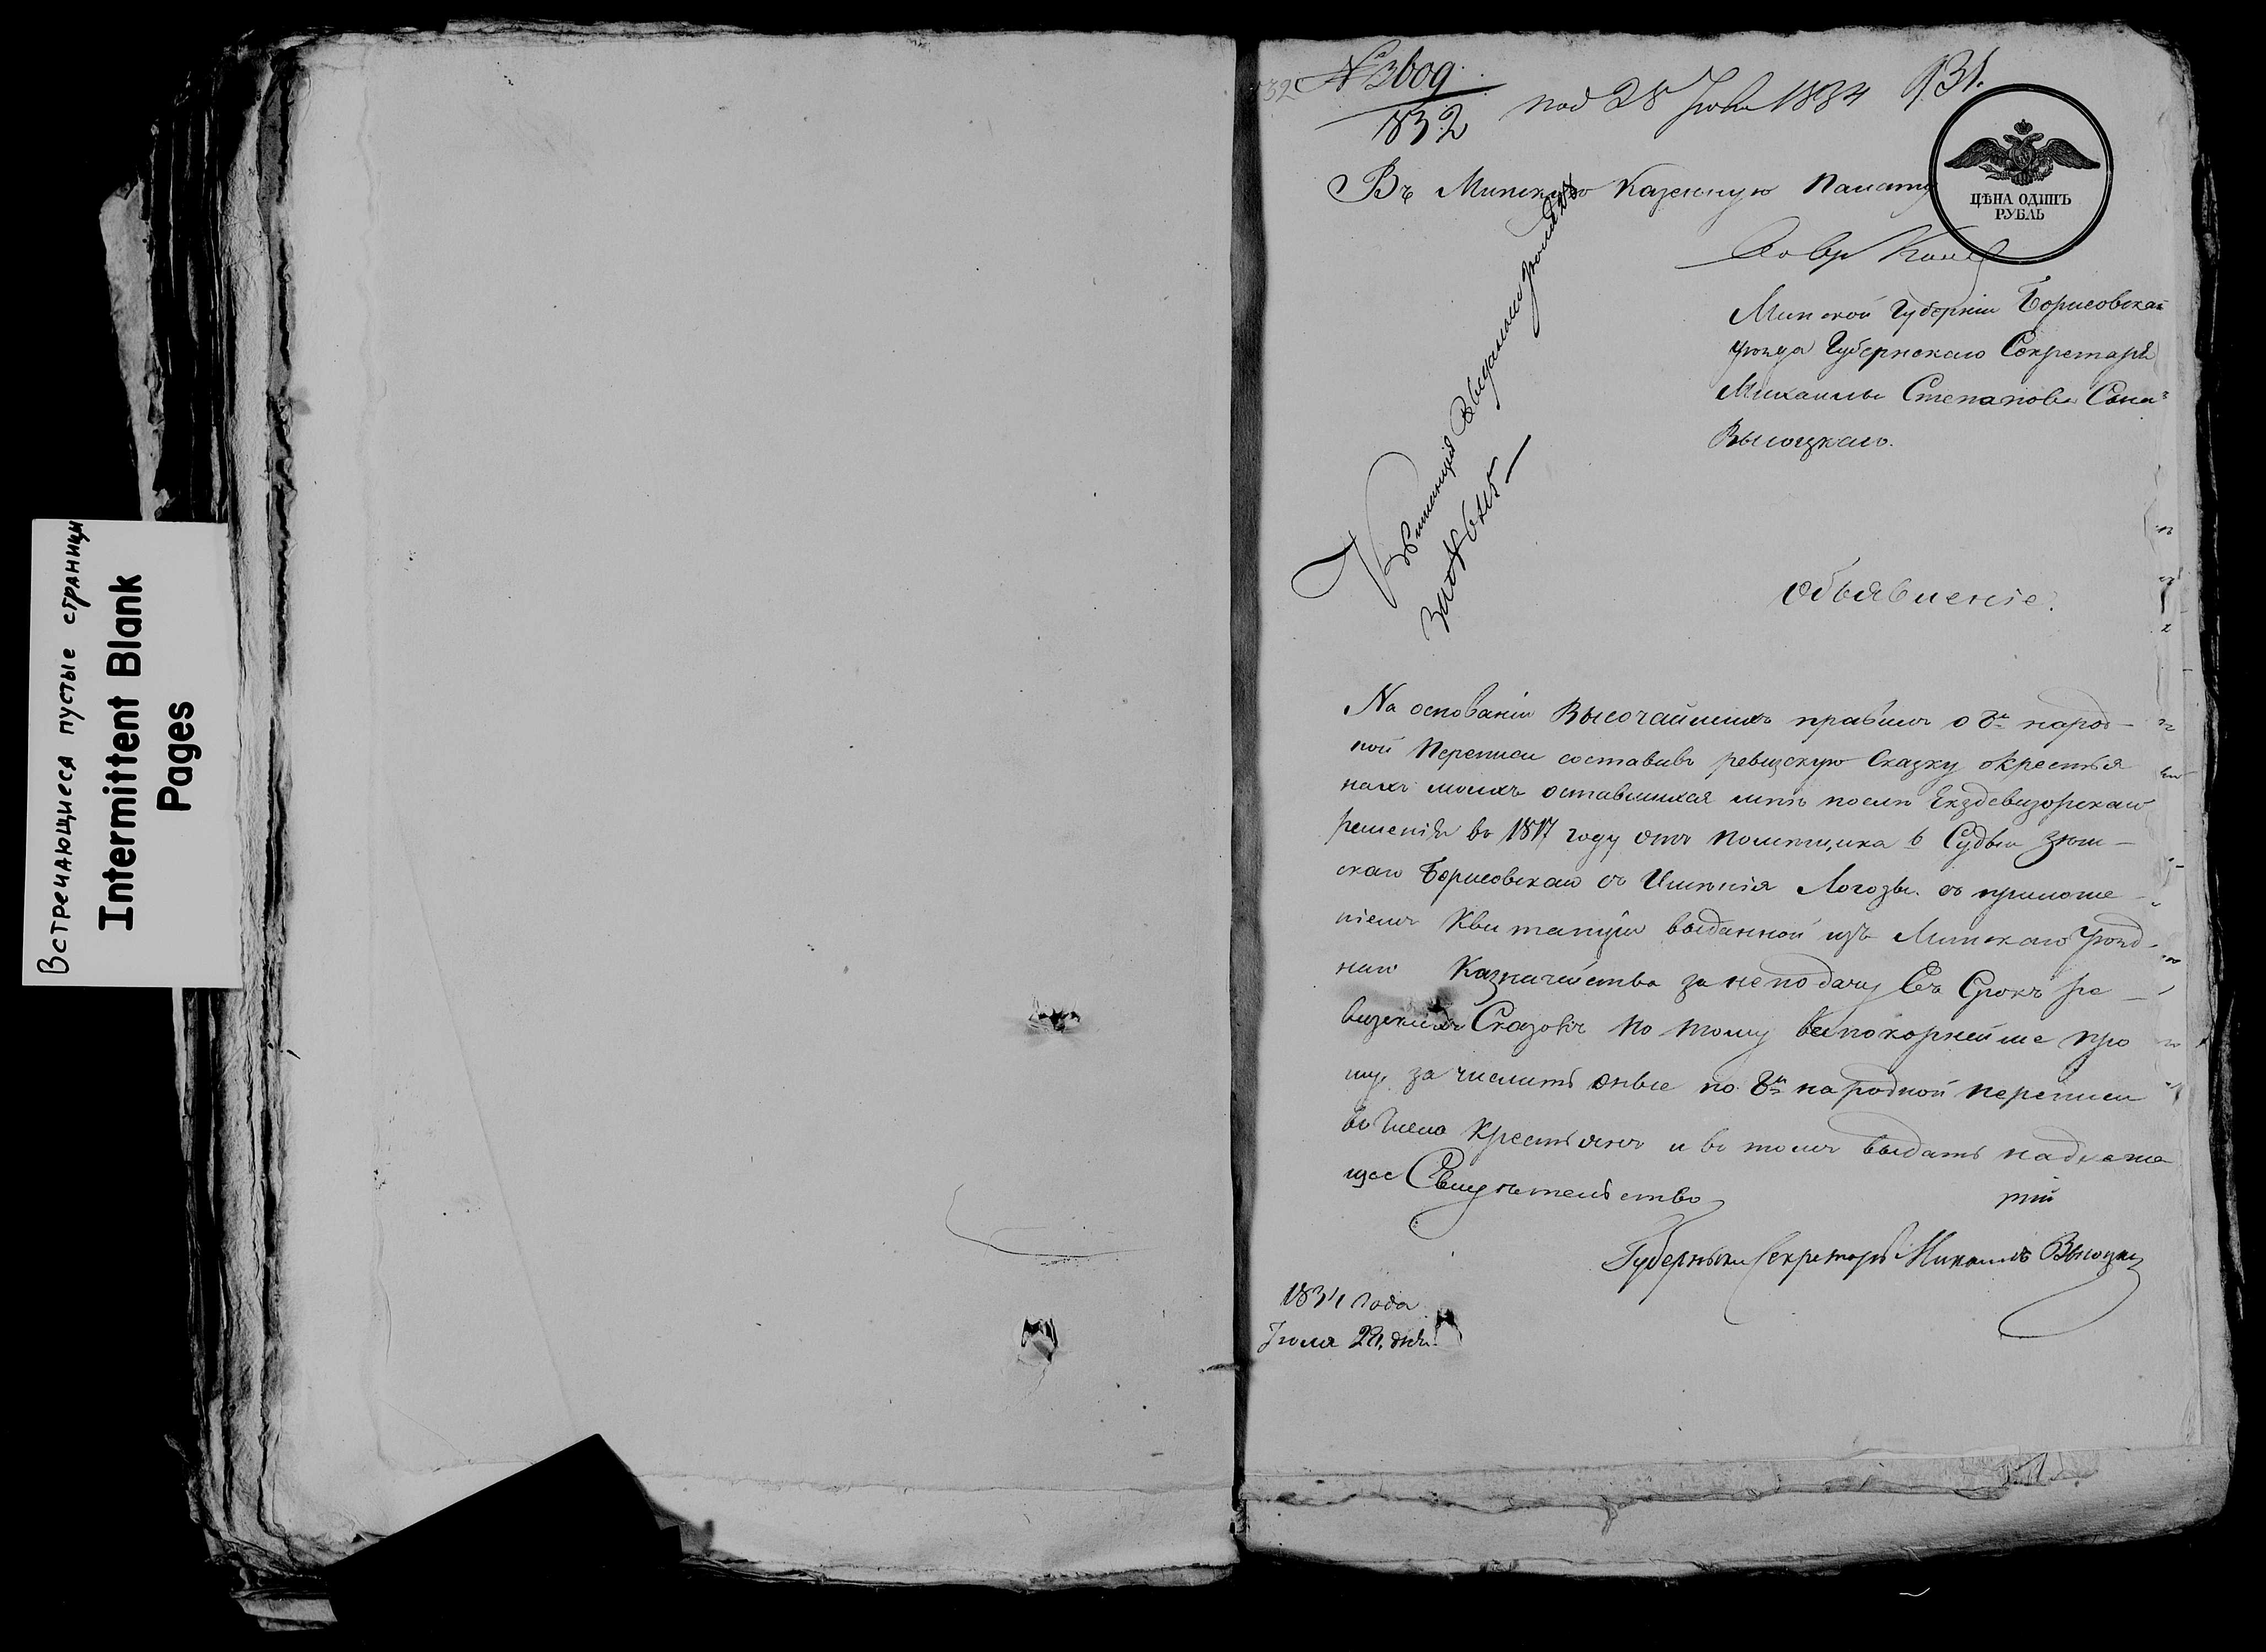 Встречающиеся пустые страницы
Intermittent Blank
Pages
№ 3609
1832
под 28 Июля 1834
931.
ЦѢНА ОДИНЪ
РУБЛЬ
Въ Минскую Казенную Палату
Минской Губерніи Борисовскаго
уѣзда Губернскаго Секретаря
Михаила Степанова Сына
Высоцкаго.
Квитанція
за №
Объявленіе.
На основаніи Высочайшихъ правилъ о 8й народ-
ной Переписи составивъ ревизскую Сказку о крестья
нахъ моихъ оставшихся мнѣ послѣ Екздевизорскаго
решенія въ 1817 году отъ помѣщика Судьи Зем-
скаго Борисовскаго съ Имѣнія Логозы съ приложе-
ніемъ Квитанціи выданной изъ Минскаго Уѣзд-
наго Казначейства за неподачу въ Срокъ ре-
визскихъ Сказокъ по тому всепокорнейше про
шу зачислить оные по 8й народной переписи
въ число крестьянъ и въ томъ выдать надлежа
щее Свидѣтельство
Губернскій Секретарь Михаилъ Высоцкій
1834 года
Іюля дня.